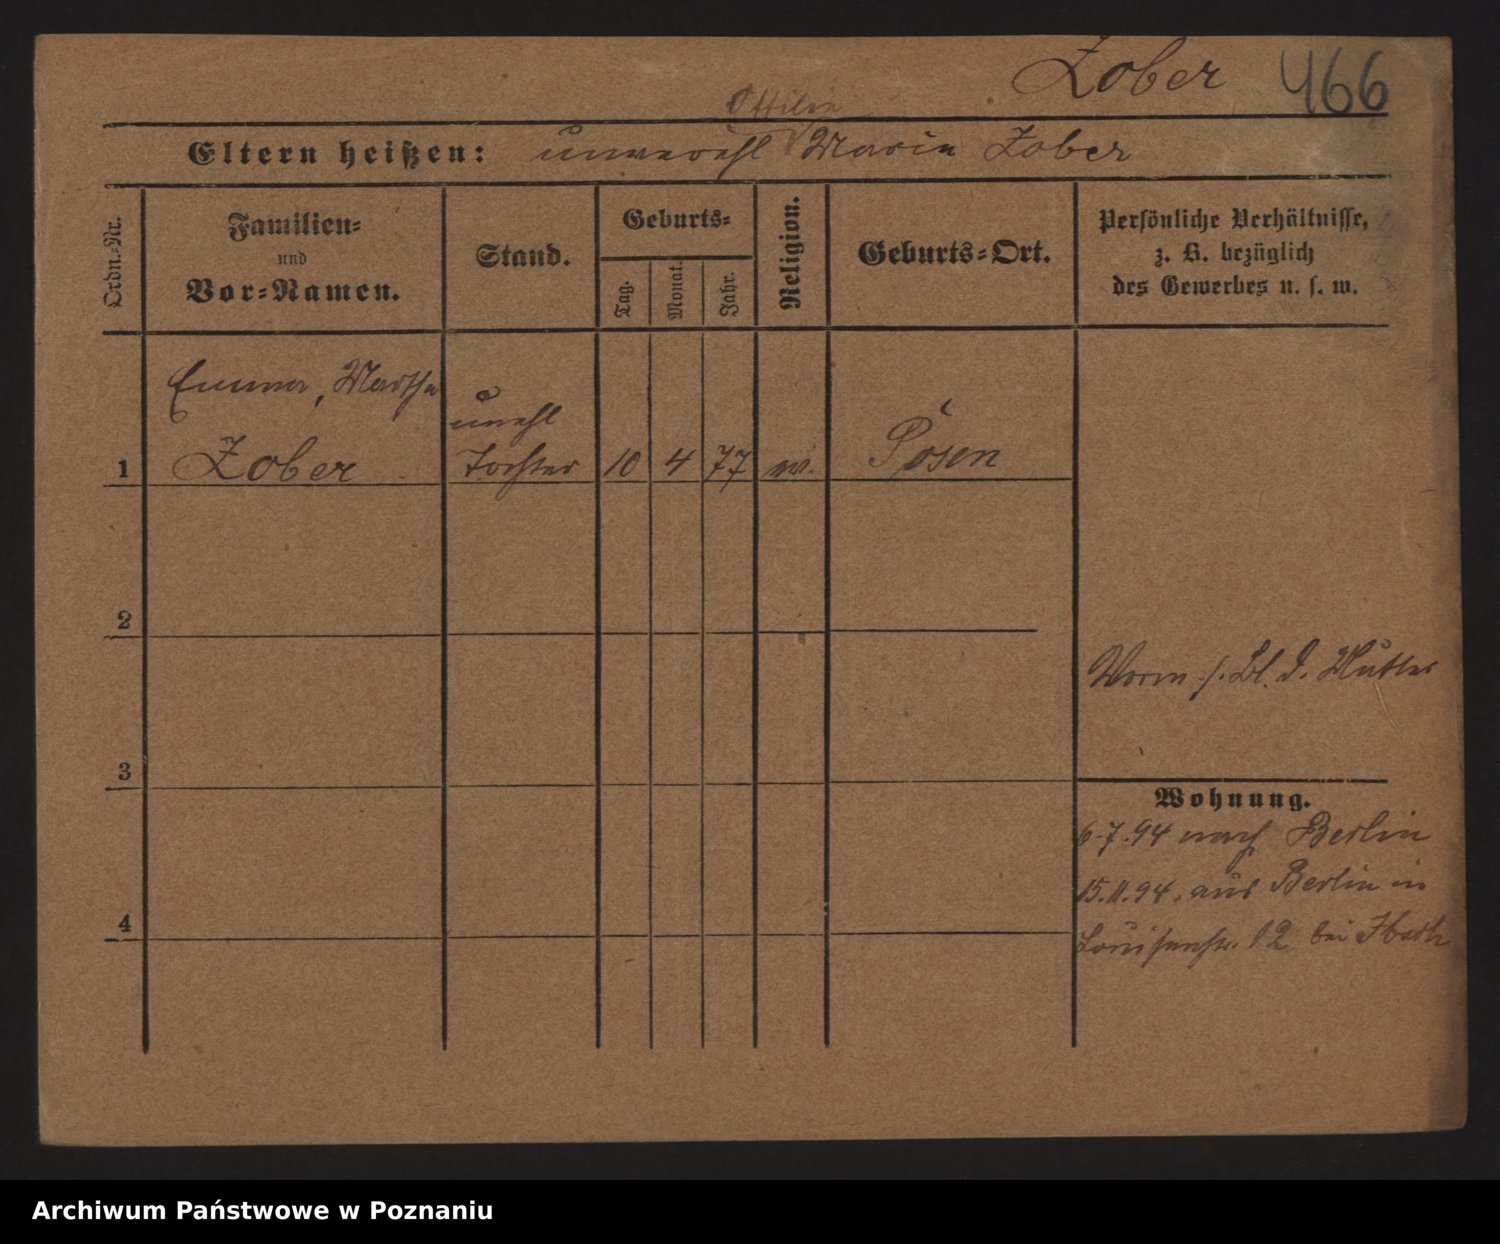 Zober 466
Ottilie
Eltern heißen: unverehl Marie Zober
Ordn.-Nr.
Familien-
und
Vor-Namen.
Stand.
Geburts-
Tag.
Monat.
Jahr.
Religion.
Geburts-Ort.
Persönliche Verhältnisse,
z. B. bezüglich
des Gewerbes u. s. w.
Emma, Martha
unehl
1 Zober Tochter 10 4 77 Posen
2
Vorm. s. Bl. d. Mutter
3
Wohnung.
6.7.94 nach Berlin
15.11.94. aus Berlin in
4
Louisenstr. 12 bei
Archiwum Państwowe w Poznaniu